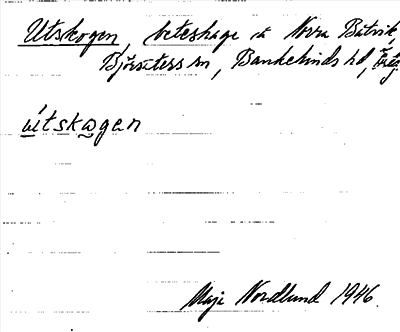 Utskogen, beteshage å Norra Båtvik,
Björsäters sn, Bankekinds hd, Ög.
ùtskogen
Maja Nordlund 1946.